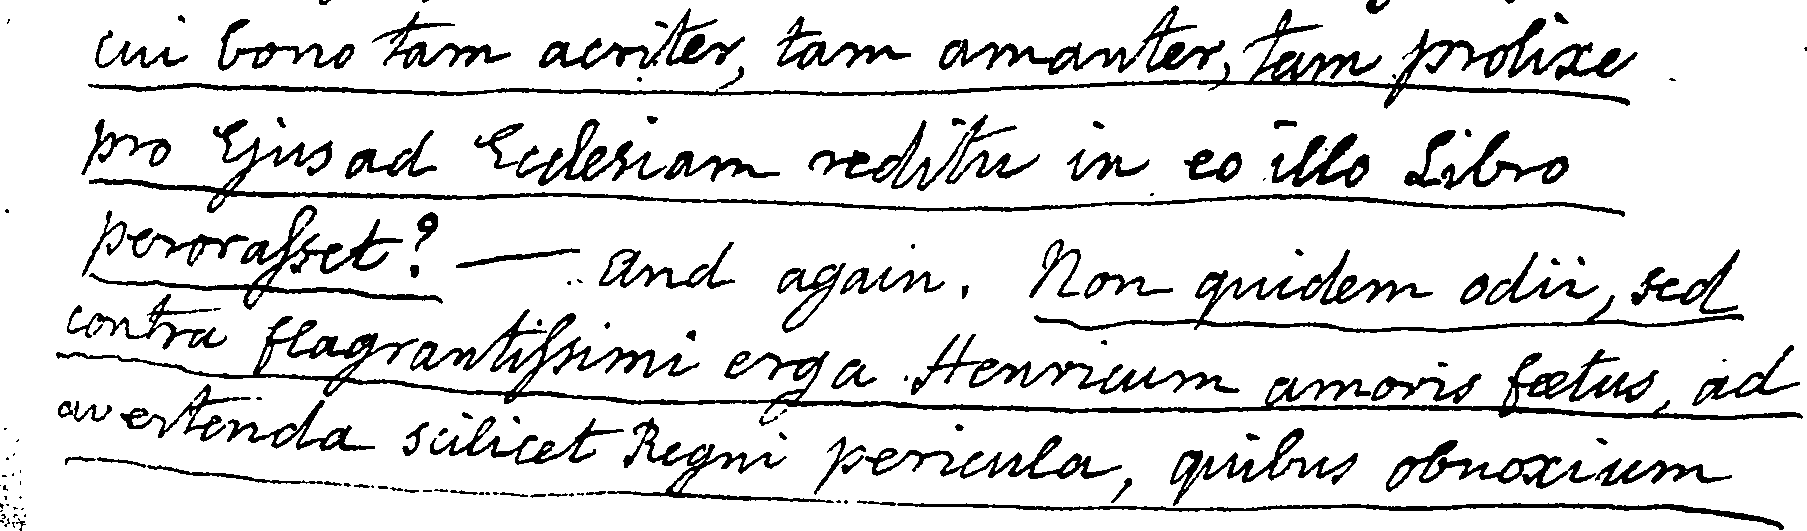 cui bono tam acriter, tam amanter, tam prolixe
pro Ejus ad Ecclesiam reditu in eo illo Libro
peroraſset? — and again. Non quidem odii, sed
contra flagrantiſsimi erga Henricum amoris fœtus, ad
avertenda scilicet Regni pericula, quibus obnoxium